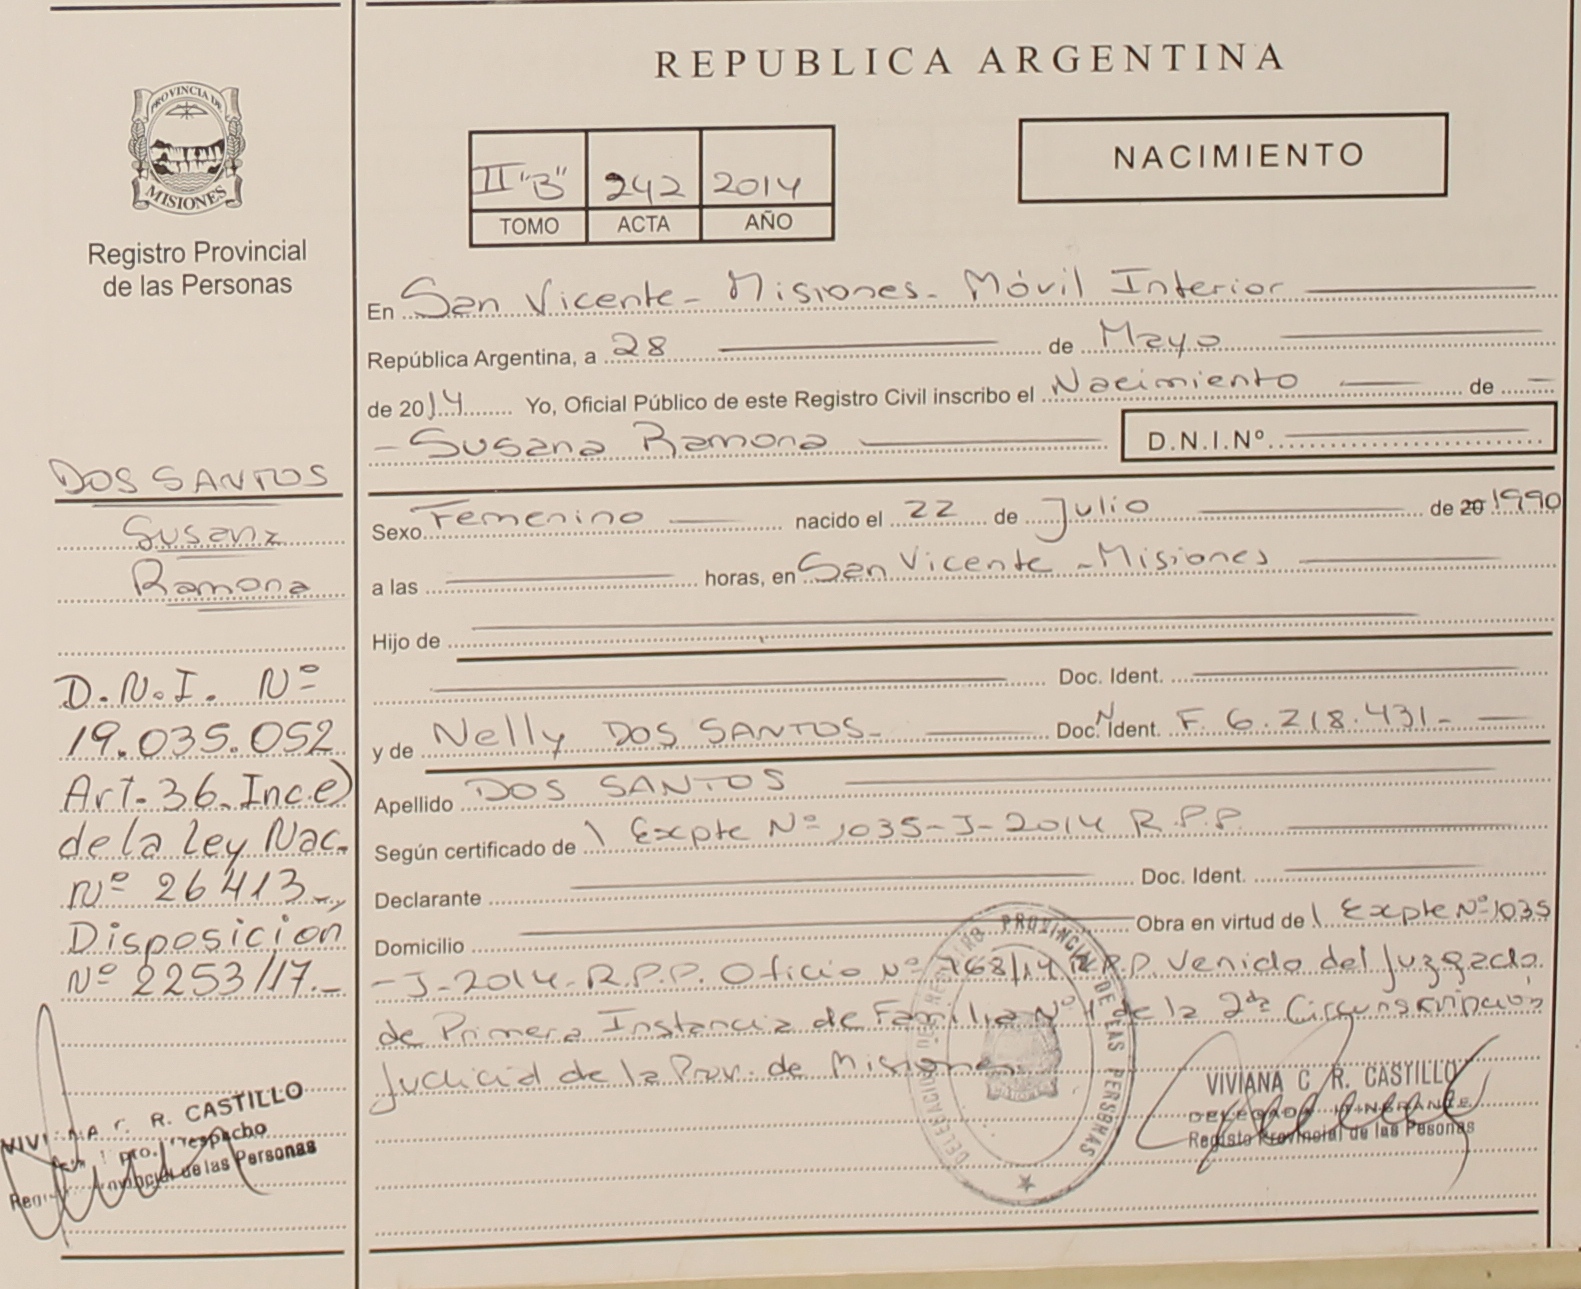 REPUBLICA ARGENTINA
PROVINCIA DE
MISIONES
Registro Provincial
de las Personas
II "B" 242 2014
TOMO ACTA AÑO
NACIMIENTO
En San Vicente - Misiones - Móvil Interior
República Argentina, a 28 de Mayo
de 2014 Yo, Oficial Público de este Registro Civil inscribo el Nacimiento de
- Susana Ramona
D.N.I. Nº
Sexo Femenino nacido el 22 de Julio de 20 1990
a las horas, en San Vicente - Misiones
Hijo de
Doc. Ident.
y de Nelly DOS SANTOS - Doc. N Ident. F. 6.218.431-
Apellido DOS SANTOS
Según certificado de \ Expte Nº 1035-J-2014 R.P.P.
Declarante Doc. Ident.
Domicilio Obra en virtud de \ Expte Nº 1035
- J-2014- R.P.P. Oficio Nº 768/14 R.P.P. Venido del Juzgado
de Primera Instancia de Familia Nº 1 de la 2da Circunscripción
Judicial de la Prov. de Misiones.
DELEGACION DEL REGISTRO PROVINCIAL DE LAS PERSONAS
VIVIANA C. R. CASTILLO
DELEGADA ITINERANTE
Registo Provincial de las Pesonas
DOS SANTOS
Susana
Ramona
D.N.I. Nº
19.035.052
Art. 36. Inc.e)
de la Ley Nac.
Nº 26413-,
Disposicion
Nº 2253/17.-
R. CASTILLO
Despacho
de las Personas